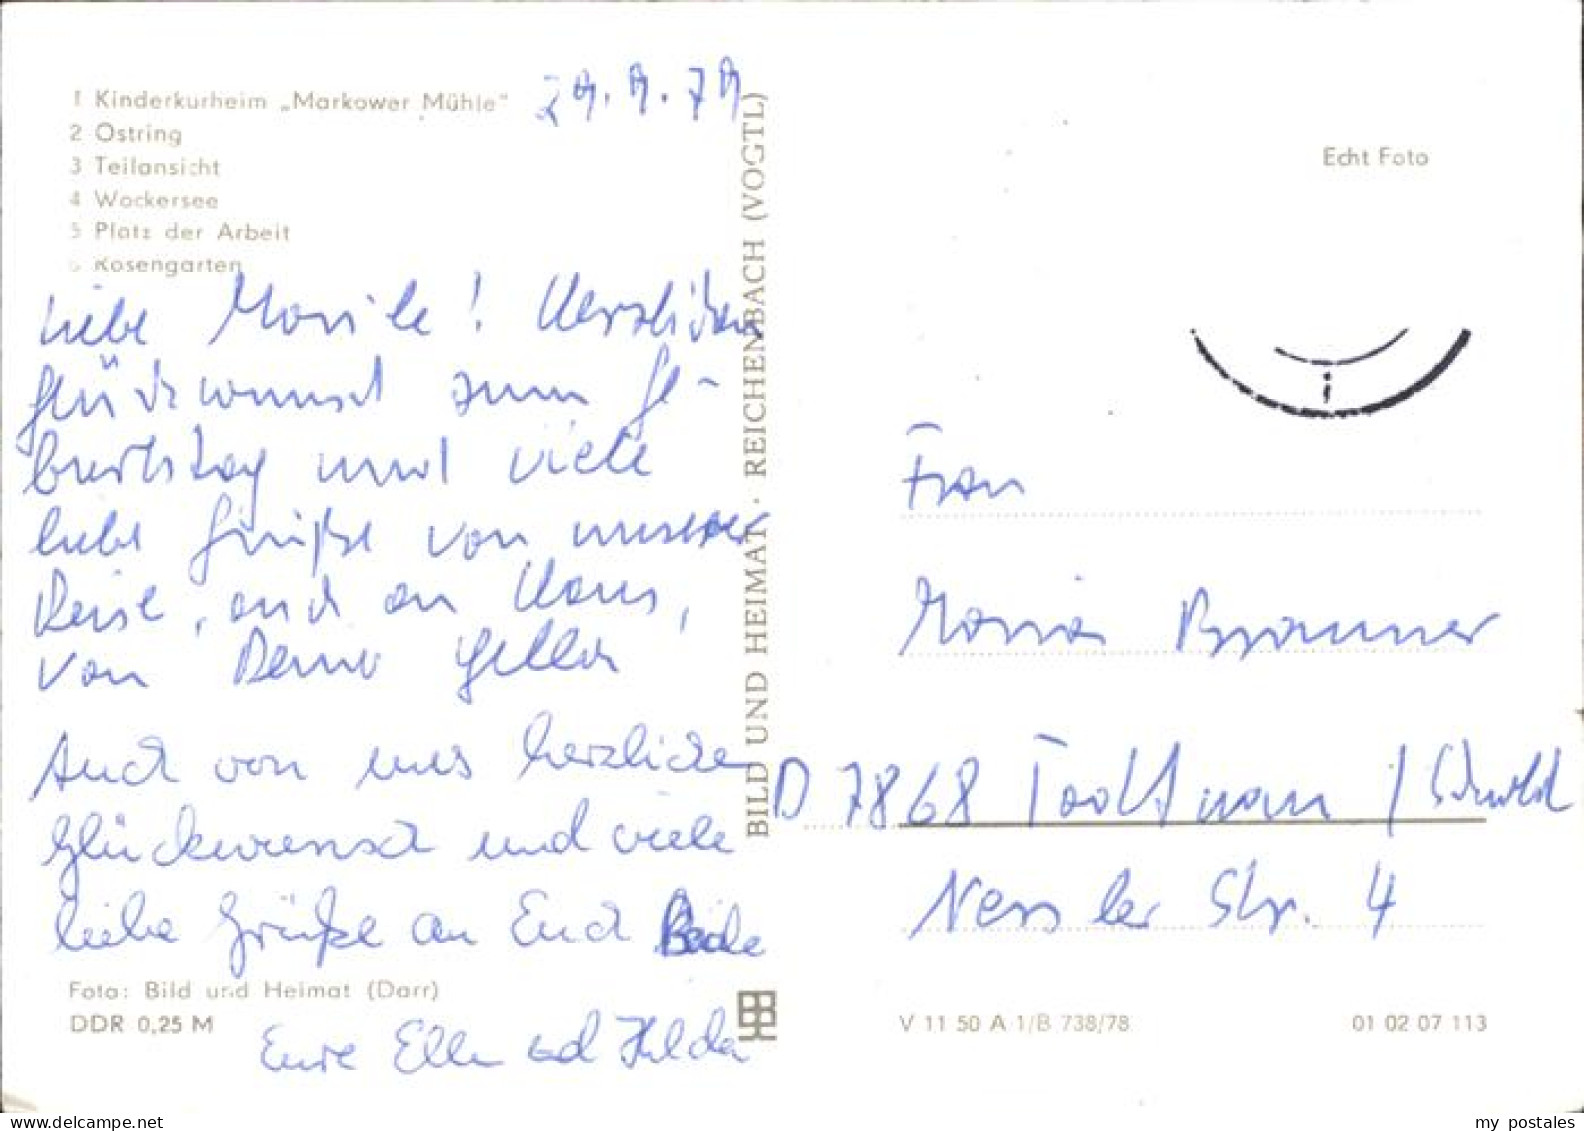 1 Kinderkurheim „Markower Mühle"
2 Ostring
3 Teilansicht
4 Wockersee
5 Platz der Arbeit
6 Rosengarten
29.9.79
Liebe Monika! Herzlichen
Glückwunsch zum Ge-
burtstag und viele
liebe Grüße von unserer
Reise, auch an Klaus,
von Deiner
Auch von uns herzlichen
Glückwunsch und viele
liebe Grüße an Euch Beide
Eure Elli und Hilda
Foto: Bild und Heimat (Darr)
DDR 0,25 M
BILD UND HEIMAT · REICHENBACH (VOGTL)
Echt Foto
Frau
Monika Brunner
D 7868 Todtnau / Schwald
Nessler Str. 4
V 11 50 A 1/B 738/78
01 02 07 113
my postales
delcampe.net